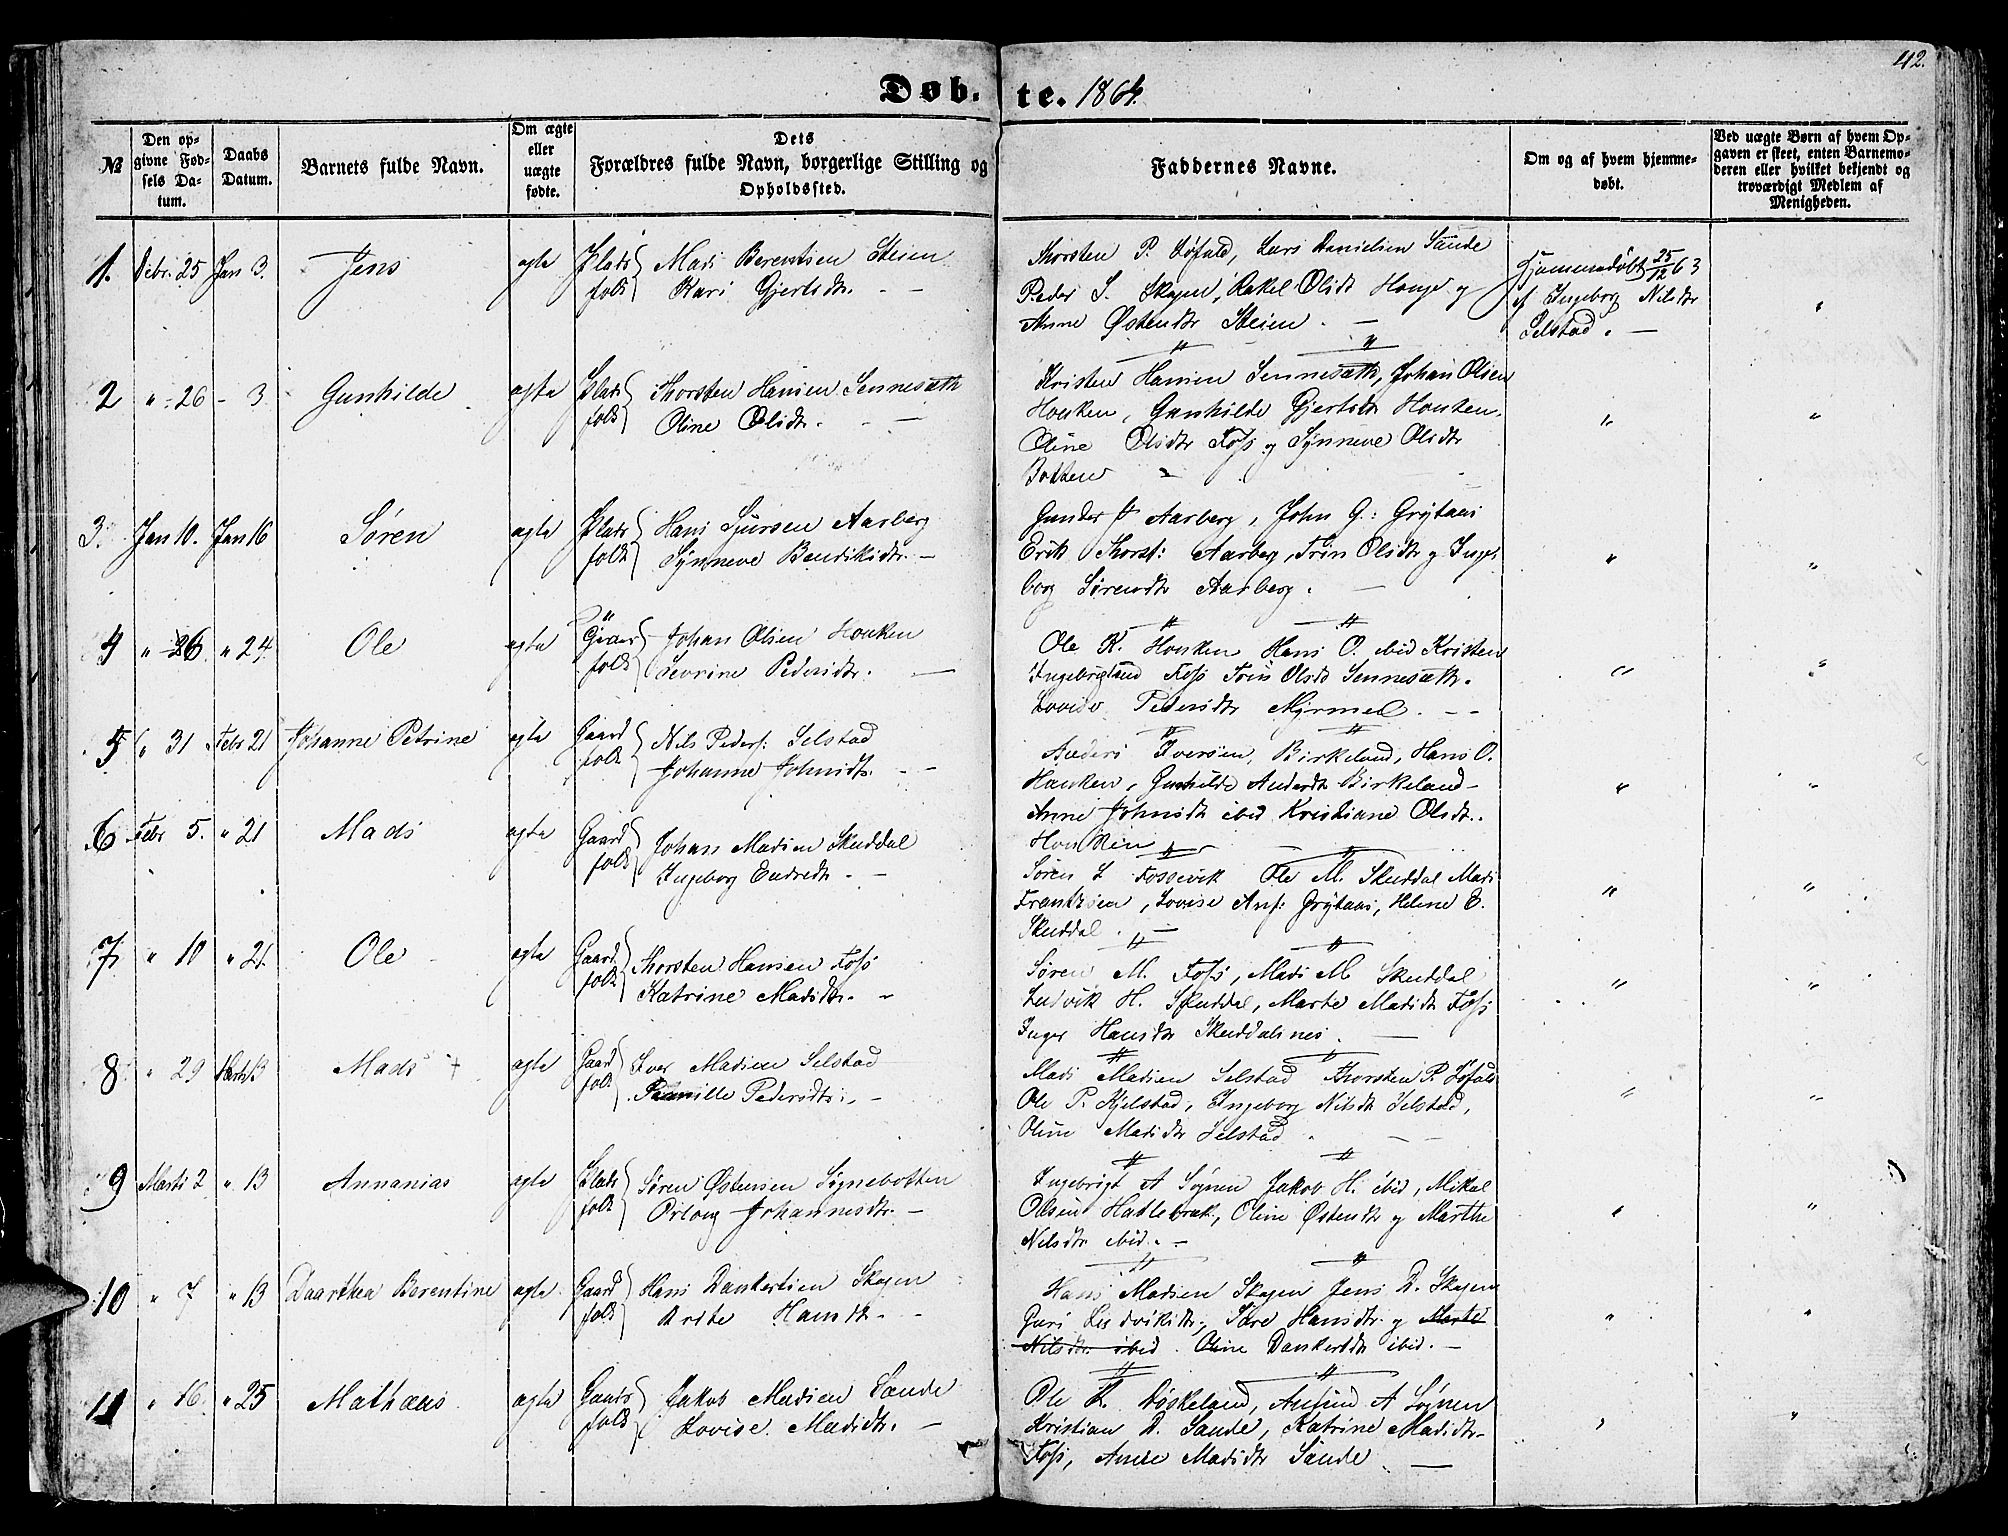 42.
Døb- te. 1864.
№
Den opgivne Fødsels Datum.
Daabs Datum.
Barnets fulde Navn.
Om ægte eller uægte fødte.
Dets Forældres fulde Navn, borgerlige Stilling og Opholdssted.
Faddernes Navne.
Om og af hvem hjemmedøbt.
Ved uægte Børn af hvem Opgaven er skeet, enten Barnemoderen eller hvilket bekjendt og troværdigt Medlem af Menigheden.
1. Debr. 25 Jan 3. Jens ægte Plads folk Mads Berentsen Steien
Kari Gjertsdtr.
Thorsten P. Løfald, Lars Danielsen Sande
Peder S. Skagen, Rakel Olsdt Hauge og
Anne Østensdtr Steien.
Hjemmedøbt 25/12 63
af Ingeborg Nilsdtr
Selstad.
2 " 26 - 3. Gunhilde ægte Plads folk Thorsten Hansen Sennesæth
Oline Olsdtr.
Kristen Hansen Sennesæth, Johan Olsen
Houken, Gunhilde Gjertsdtr Houken.
Oline Olsdtr Foss og Synneve Olsdtr
Botten
3. Jan 10. Jan 16 Søren ægte Plads folk Hans Sjursen Aarberg
Synneve Bendiksdtr.
Gunder J Aarberg, John G: Grytaas
Erik Thorst: Aarberg, Trin Olsdtr og Inge-
borg Sørensdtr Aarberg.
4 " 26. " 24. Ole ægte Gaard folk Johan Olsen Houken
Severine Pedersdtr.
Ole K. Houken Hans O. ibid Kristen
Ingebrigtsen Foss Trin Olsdt Sennesæth.
Lovise Pedersdtr Myrmel.
5 " 31 Febr 21 Johanne Petrine ægte Gaard folk Nils Peders: Selstad
Johanne Johnsdtr.
Anders Iversen, Birkeland, Hans O.
Houken, Gunhilde Andersdt Birkeland
Anne Johnsdt ibid Kristiane Olsdt.
Houken
6 Febr 5. " 21 Mads ægte Gaard folk Johan Madsen Skuddal
Ingeborg Endresdtr.
Søren L Fossevik Ole M. Skuddal Mads
Frantzsen, Lovise Ans: Grytaas, Helene E.
Skuddal.
7 " 10 " 21. Ole ægte Gaard folk Thorsten Hansen Foss
Katrine Madsdtr.
Søren M. Foss, Mads M. Skuddal
Ludvik H. Skuddal, Marte Madsdt Foss
Inger Hansdtr Skuddalsnes.
8 " 29 Marts 13 Mads + ægte Gaard folk Iver Madsen Selstad
Pernille Pedersdtr.
Mads Madsen Selstad Thorsten P. Løfald
Ole P. Kjelstad, Ingeborg Nilsdt Selstad,
Oline Madsdtr Selstad.
9 Marts 2 " 13 Annanias ægte Plads folk Søren Østensen Søgnebotten
Orloug Johannesdtr.
Ingebrigt A Søgnen Jakob H. ibid, Mikal
Olsen Hatlebrek, Oline Østensdt og Marthe
Nilsdtr ibid.
10 " 7 " 13 Daarthea Berentine ægte Gaard folk Hans Dankertsen Skagen
Dorte Hansdtr.
Hans Madsen Skagen Jens D. Skagen
Guri Ludviksdtr, Sære Hansdtr. og Marte
Nilsdtr ibid. Oline Dankertsdt ibid.
11 " 16. " 25 Mathæus ægte Gaards folk Jakob Madsen Sande
Lovise Madsdtr.
Ole R. Døskeland, Ansund A Søgnen
Kristian D. Sande, Katrine Madsdtr
Foss, Anne Madsdtr Sande